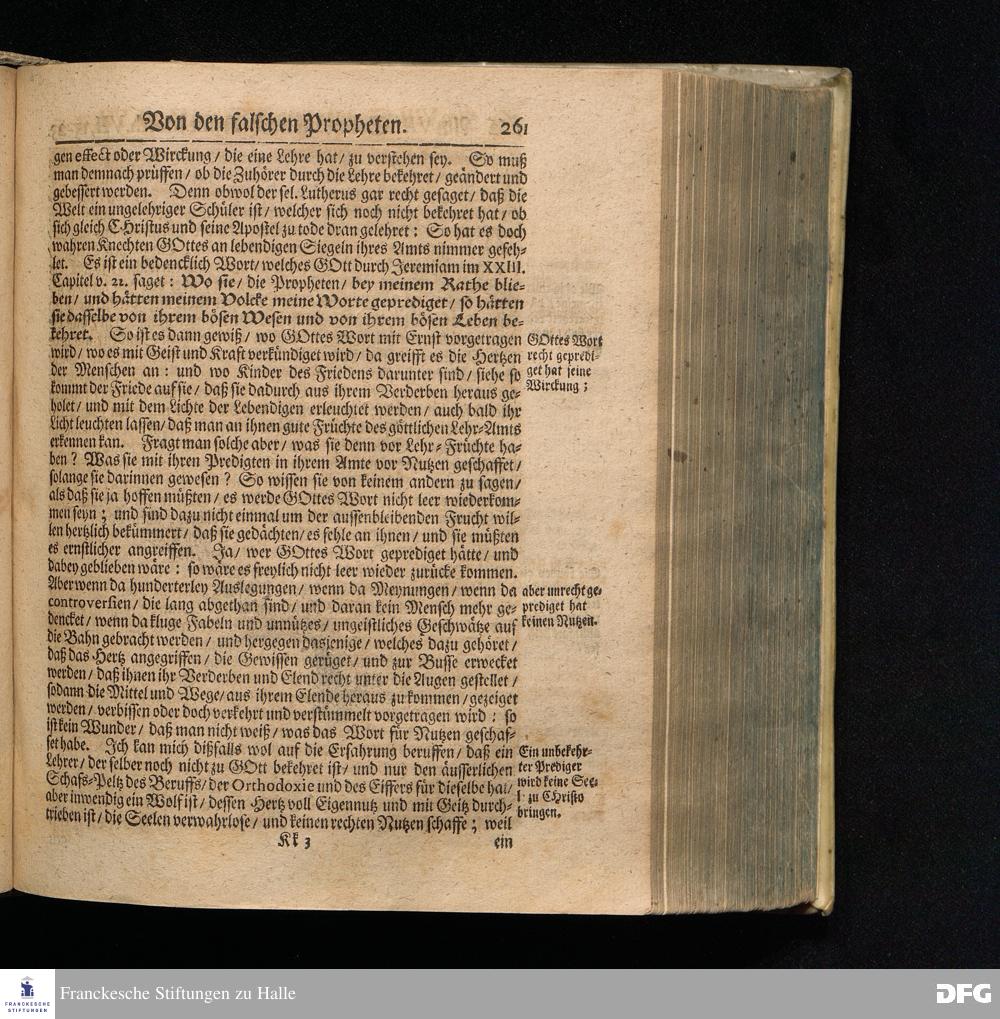 Von den falschen Propheten. 261
gen effect oder Wirckung / die eine Lehre hat / zu verstehen sey. So muß
man demnach prüffen / ob die Zuhörer durch die Lehre bekehret / geändert und
gebessert werden. Denn obwol der sel. Lutherus gar recht gesaget / daß die
Welt ein ungelehriger Schüler ist / welcher sich noch nicht bekehret hat / ob
sich gleich CHristus und seine Apostel zu tode dran gelehret : So hat es doch
wahren Knechten GOttes an lebendigen Siegeln ihres Amts nimmer gefeh-
let. Es ist ein bedencklich Wort / welches GOtt durch Jeremiam im XXIII.
Capitel v. 22. saget : Wo sie / die Propheten / bey meinem Rathe blie-
ben / und hätten meinem Volcke meine Worte geprediget / so hätten
sie dasselbe von ihrem bösen Wesen und von ihrem bösen Leben be-
kehret. So ist es dann gewiß / wo GOttes Wort mit Ernst vorgetragen
wird / wo es mit Geist und Kraft verkündiget wird / da greifft es die Hertzen
der Menschen an : und wo Kinder des Friedens darunter sind / siehe so
kommt der Friede auf sie / daß sie dadurch aus ihrem Verderben heraus ge-
holet / und mit dem Lichte der Lebendigen erleuchtet werden / auch bald ihr
Licht leuchten lassen / daß man an ihnen gute Früchte des göttlichen Lehr-Amts
erkennen kan. Fragt man solche aber / was sie denn vor Lehr-Früchte ha-
ben ? Was sie mit ihren Predigten in ihrem Amte vor Nutzen geschaffet /
solange sie darinnen gewesen ? So wissen sie von keinem andern zu sagen /
als daß sie ja hoffen müßten / es werde GOttes Wort nicht leer wiederkom-
men seyn ; und sind dazu nicht einmal um der aussenbleibenden Frucht wil-
len hertzlich bekümmert / daß sie gedächten / es fehle an ihnen / und sie müßten
es ernstlicher angreiffen. Ja / wer GOttes Wort geprediget hätte / und
dabey geblieben wäre : so wäre es freylich nicht leer wieder zurücke kommen.
Aber wenn da hunderterley Auslegungen / wenn da Meynungen / wenn da
controversien / die lang abgethan sind / und daran kein Mensch mehr ge-
dencket / wenn da kluge Fabeln und unnützes / ungeistliches Geschwätze auf
die Bahn gebracht werden / und hergegen dasjenige / welches dazu gehöret /
daß das Hertz angegriffen / die Gewissen gerüget / und zur Busse erwecket
werden / daß ihnen ihr Verderben und Elend recht unter die Augen gestellet /
sodann die Mittel und Wege / aus ihrem Elende heraus zu kommen / gezeiget
werden / verbissen oder doch verkehrt und verstümmelt vorgetragen wird : so
ist kein Wunder / daß man nicht weiß / was das Wort für Nutzen geschaf-
fet habe. Ich kan mich dißfalls wol auf die Erfahrung beruffen / daß ein
Lehrer / der selber noch nicht zu GOtt bekehret ist / und nur den äusserlichen
Schafs-Peltz des Beruffs / der Orthodoxie und des Eiffers für dieselbe hat /
aber inwendig ein Wolf ist / dessen Hertz voll Eigennutz und mit Geitz durch-
trieben ist / die Seelen verwahrlose / und keinen rechten Nutzen schaffe ; weil
Kk 3 ein
GOttes Wort
recht gepredi-
get hat seine
Wirckung ;
aber unrecht ge-
prediget hat
keinen Nutzen.
Ein unbekehr-
ter Prediger
wird keine See-
l zu CHristo
bringen.
FRANCKESCHE
STIFTUNGEN
Franckesche Stiftungen zu Halle
DFG